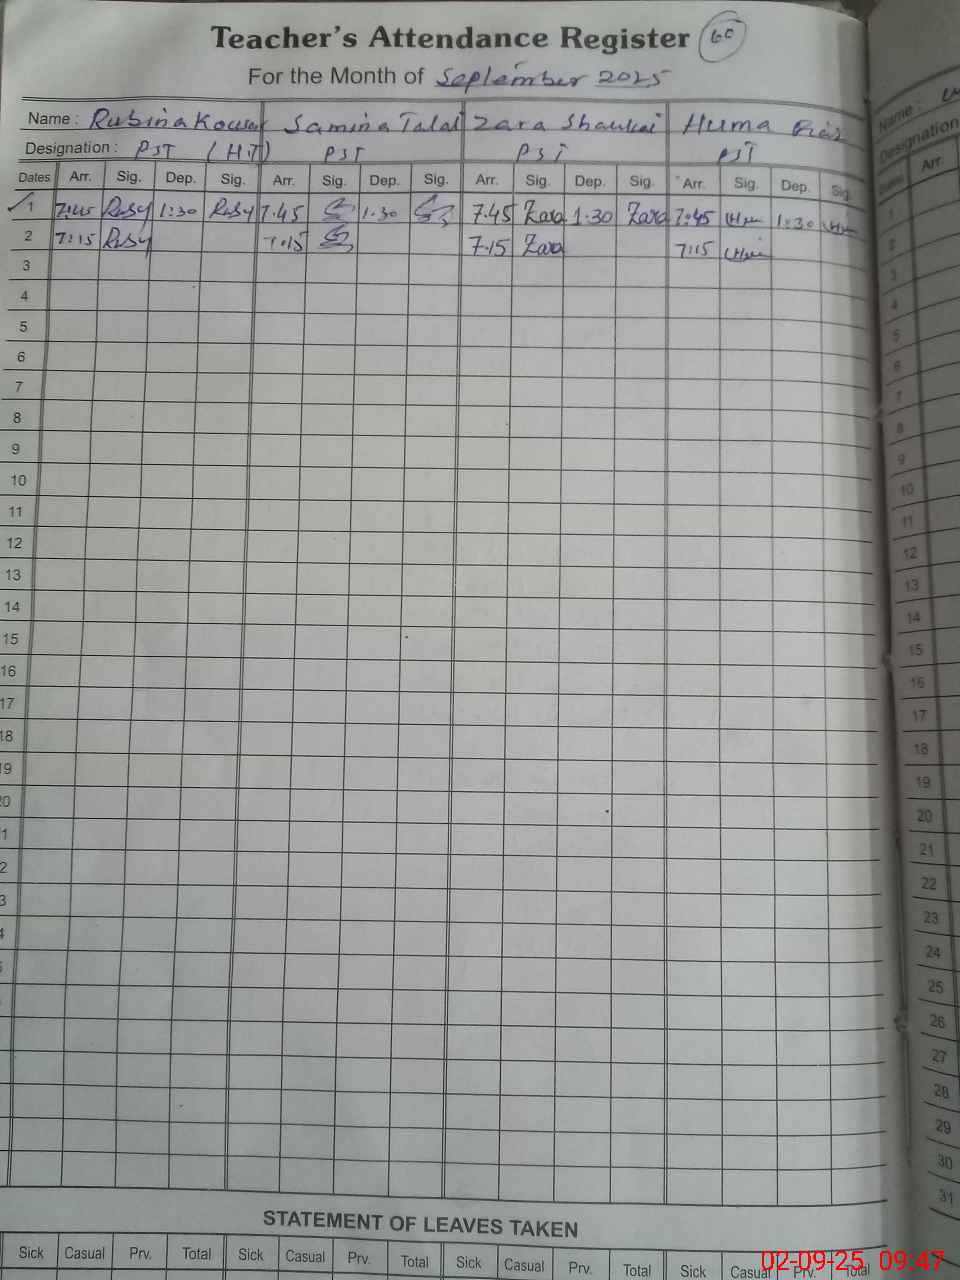 Teacher's Attendance Register 60
For the Month of September 2025
Name : Rubina Kousar Samina Talat Zara Shaukat Huma Riaz
Designation : PST (H.T) PST PST PST
Dates Arr. Sig. Dep. Sig. Arr. Sig. Dep. Sig. Arr. Sig. Dep. Sig. Arr. Sig. Dep. Sig.
1 7:45 Ruby 1:30 Ruby 7.45 1.30 7.45 Zara 1.30 Zara 7:45 1:30
2 7:15 Ruby 7.15 7.15 Zara 7:15
3
4
5
6
7
8
9
10
11
12
13
14
15
16
17
18
19
20
1
2
3
4
STATEMENT OF LEAVES TAKEN
Sick Casual Prv. Total Sick Casual Prv. Total Sick Casual Prv. Total Sick Casual Prv. Total
02-09-25 09:47
Name :
Designation
Dates Arr.
1
2
3
4
5
6
7
8
9
10
11
12
13
14
15
16
17
18
19
20
21
22
23
24
25
26
27
28
29
30
31